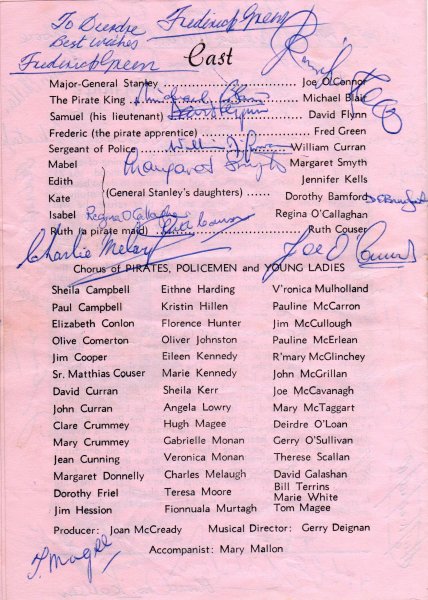 To Deirdre Frederick Green
Best wishes
Frederick Green
Cast
Major-General Stanley ................ Joe O'Connor
The Pirate King ................ Michael Blair
Samuel (his lieutenant) ................ David Flynn
Frederic (the pirate apprentice) ................ Fred Green
Sergeant of Police ................ William Curran
Mabel Margaret Smyth Margaret Smyth
Edith Jennifer Kells
(General Stanley's daughters) ......
Kate Dorothy Bamford D Bamford
Isabel Regina O'Callaghan Regina O'Callaghan
Ruth (a pirate maid) Ruth Couser Ruth Couser
Charlie Melaugh Joe O'Connor
Chorus of PIRATES, POLICEMEN and YOUNG LADIES
Sheila Campbell Eithne Harding V'ronica Mulholland
Paul Campbell Kristin Hillen Pauline McCarron
Elizabeth Conlon Florence Hunter Jim McCullough
Olive Comerton Oliver Johnston Pauline McErlean
Jim Cooper Eileen Kennedy R'mary McGlinchey
Sr. Matthias Couser Marie Kennedy John McGrillan
David Curran Sheila Kerr Joe McCavanagh
John Curran Angela Lowry Mary McTaggart
Clare Crummey Hugh Magee Deirdre O'Loan
Mary Crummey Gabrielle Monan Gerry O'Sullivan
Jean Cunning Veronica Monan Therese Scallan
Margaret Donnelly Charles Melaugh David Galashan
Dorothy Friel Teresa Moore Bill Terrins
Marie White
Jim Hession Fionnuala Murtagh Tom Magee
Producer: Joan McCready Musical Director: Gerry Deignan
Accompanist: Mary Mallon
T. Magee